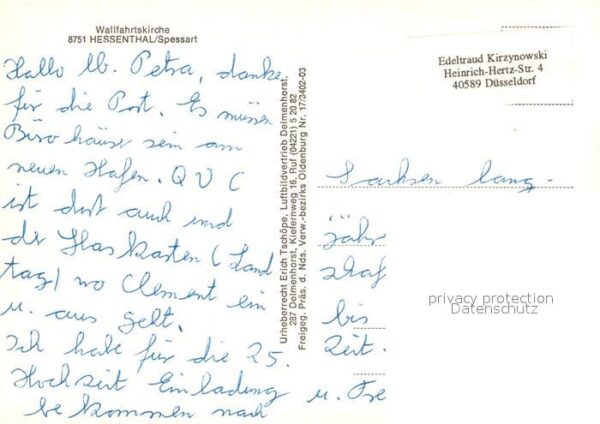 Wallfahrtskirche
8751 HESSENTHAL/Spessart
Hallo lb. Petra, danke
für die Post. Es müssen
Büro häuser sein am
neuen Hafen. QVC
ist dort auch und
der Glaskasten (Land
tag) wo Clement ein
u. aus geht.
Ich habe für die 25.
Hochzeit Einladung
bekommen nach
Urheberrecht Erich Tschöpe, Luftbildvertrieb Delmenhorst,
287 Delmenhorst, Kiefernweg 16, Ruf (04221) 5 20 82
Freigeg. Präs. d. Nds. Verw.-bezirks Oldenburg Nr. 17/3402-03
Edeltraud Kirzynowski
Heinrich-Hertz-Str. 4
40589 Düsseldorf
Sachsen lang-
jähr
bis
Zeit.
u.
privacy protection
Datenschutz